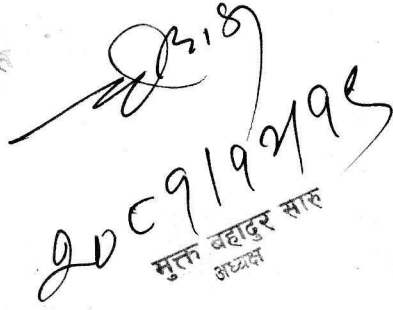 २०८१।१२।१९
मुक्त बहादुर सारु
अध्यक्ष